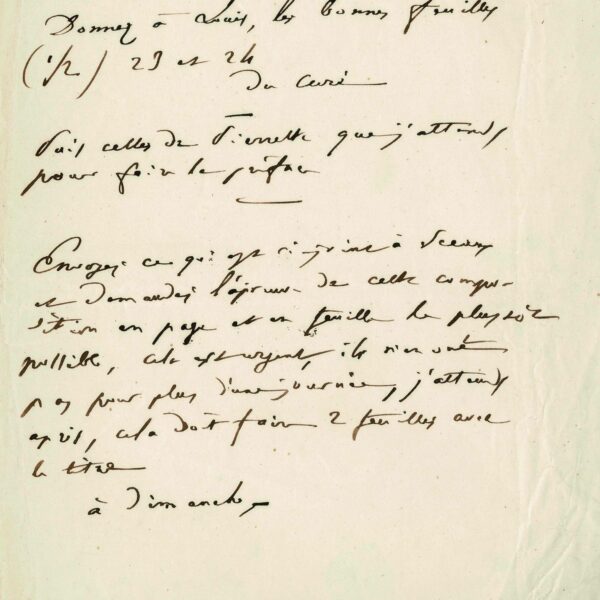 Donnez à Louis, les bonnes feuilles
(1/2) 23 et 24
du curé
Puis celles de Pierrette que j'attends
pour faire la préface
Envoyez ce qui est ci joint à Sceaux
et demandez l'épreuve de cette compo-
sition en page et en feuille le plustôt
possible, cela est urgent, ils n'en ont
pas pour plus d'une journée, j'attends
après, cela doit faire 2 feuilles avec
le titre
à dimanche